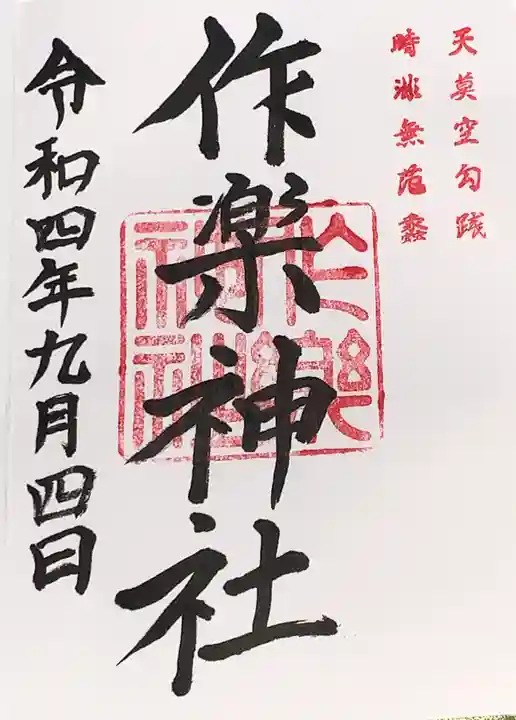 天莫空勾践
時非無范蠡
作楽神社
作楽神社
令和四年九月四日